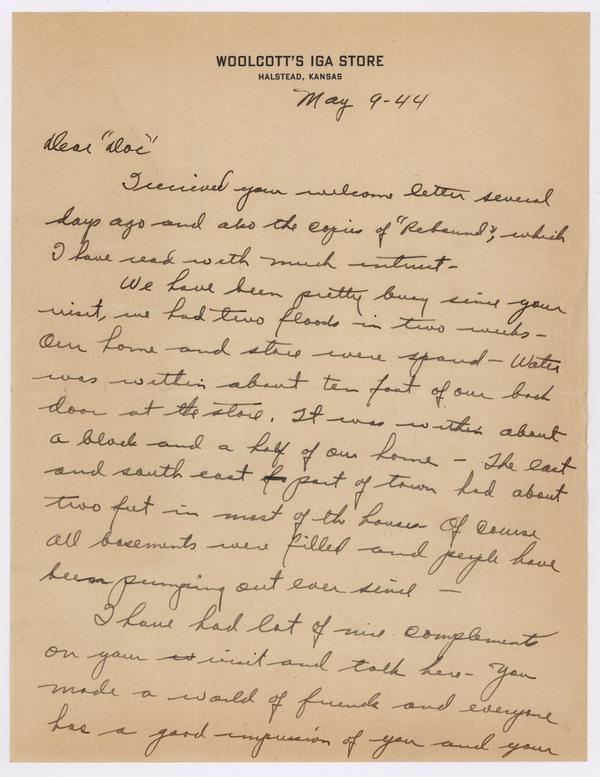 WOOLCOTT'S IGA STORE
HALSTEAD, KANSAS
May 9-44
Dear "Doc"
I recieved your welcome letter several
days ago and also the copies of "Rebound", which
I have read with much intrust-
We have been pretty busy since your
visit, we had two floods in two weeks-
Our home and store were spared - Water
was within about ten foot of our back
door at the store. It was within about
a block and a half of our home - The east
and south east part of town had about
two feet in most of the houses- Of course
all basements were filled and people have
been pumping out ever since -
I have had lot of nice complements
on your visit and talk here- You
made a world of friends and everyone
has a good impression of you and your